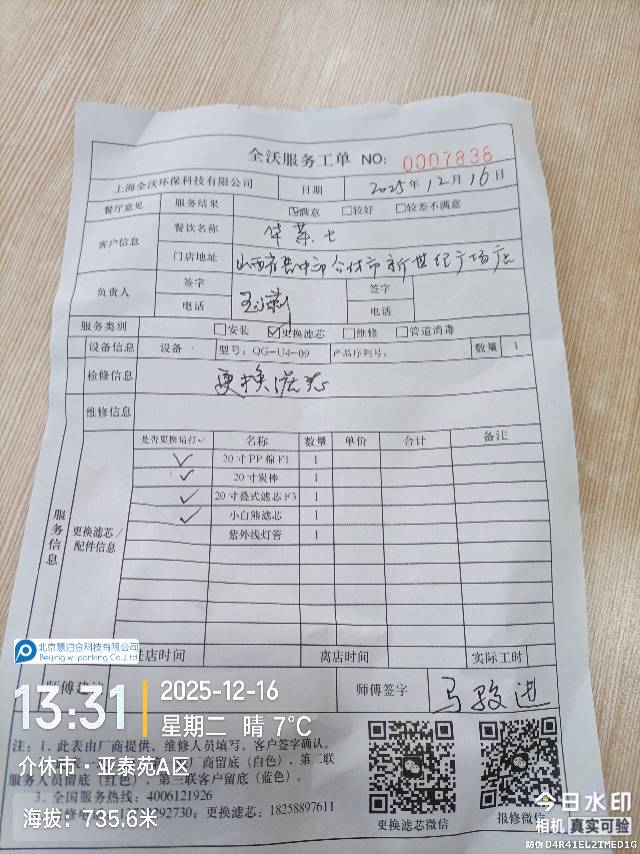 全沃服务工单 NO: 0007838
上海全沃环保科技有限公司 日期 2025年12月16日
餐厅意见 服务结果 ☑满意 □较好 □较差不满意
客户信息 餐饮名称 华莱士
门店地址 山西省晋中市介休市新世纪广场店
负责人 签字 签字
电话 电话
服务类别 □安装 ☑更换滤芯 □维修 □管道消毒
设备信息 设备 型号: QG-U4-09 产品序列号: 数量 1
检修信息 更换滤芯
维修信息
服务信息
更换滤芯/配件信息
是否更换请打✓ 名称 数量 单价 合计 备注
✓ 20寸PP棉F1 1
✓ 20寸炭棒 1
✓ 20寸叠式滤芯F3 1
✓ 小白熊滤芯 1
紫外线灯管 1
进店时间 离店时间 实际工时
师傅建议 师傅签字 马骏进
注: 1、此表由厂商提供, 维修人员填写, 客户签字确认。
厂商留底(白色), 第二联
服务人员留底(红色), 第三联客户留底(蓝色)。
3、全国服务热线: 4006121926
292730; 更换滤芯: 18258897611
更换滤芯微信 报修微信
北京慧泊金科技有限公司
Beijing wi-parking Co.,Ltd
13:31
2025-12-16
星期二 晴 7℃
介休市·亚泰苑A区
海拔: 735.6米
今日水印
相机 真实可验
防伪 D4R41EL2TMED1G